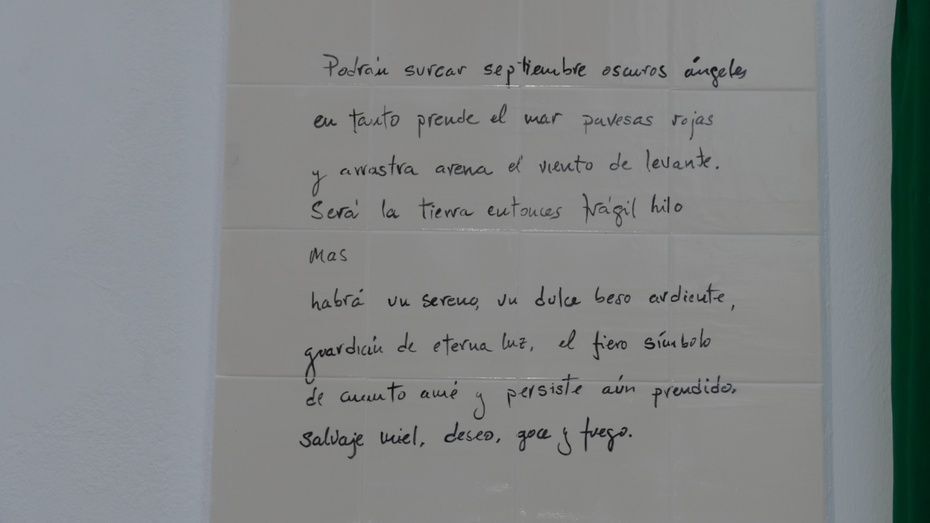 Podrán surcar septiembre oscuros ángeles
en tanto prende el mar pavesas rojas
y arrastra arena el viento de levante.
Será la tierra entonces frágil hilo
Mas
habrá un sereno, un dulce beso ardiente,
guardián de eterna luz, el fiero símbolo
de cuanto amé y persiste aún prendido,
salvaje miel, deseo, goce y fuego.